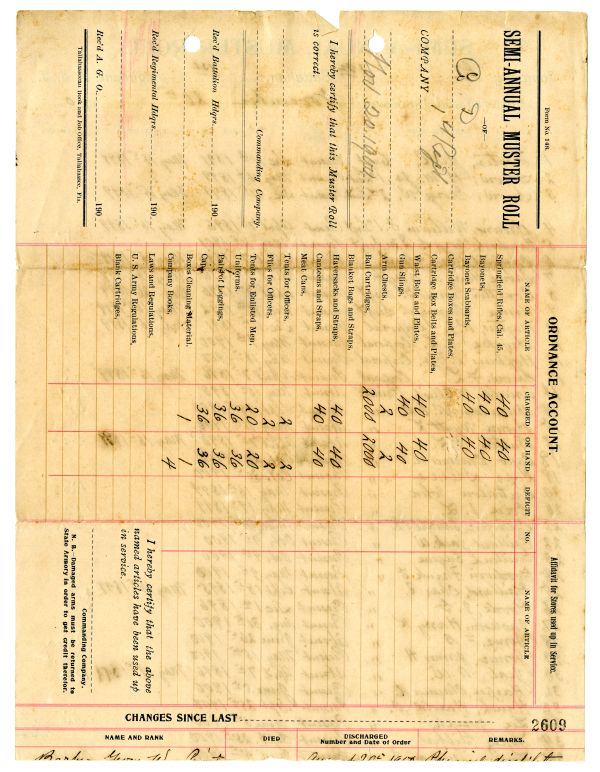 Form No. 148.
SEMI-ANNUAL MUSTER ROLL
—OF—
Co D
COMPANY 1st Regt
Nov 20, 1904
I hereby certify that this Muster Roll
is correct.
Commanding Company.
Rec'd Battalion Hdqrs. 190
Rec'd Regimental Hdqrs. 190
Rec'd A. G. O. 190
Tallahasseean Book and Job Office, Tallahassee, Fla.
ORDNANCE ACCOUNT.
NAME OF ARTICLE CHARGED ON HAND DEFICIT
Springfield Rifles, Cal. 45, 40 40
Bayonets, 40 40
Bayonet Scabbards, 40 40
Cartridge Boxes and Plates,
Cartridge Box Belts and Plates,
Waist Belts and Plates, 40 40
Gun Slings, 40 40
Arm Chests, 2 2
Bal Cartridges, 2000 2000
Blanket Bags and Straps,
Haversacks and Straps, 40 40
Canteens and Straps, 40 40
Meat Cans,
Tents for Officers, 2 2
Flies for Officers, 2 2
Tents for Enlisted Men, 20 20
Uniforms, 36 36
Pairs of Leggings, 36 36
Caps, 36 36
Boxes Cleaning Material, 1 1
Company Books, 4
Laws and Regulations,
U. S. Army Regulations,
Blank Cartridges,
Affidavit for Stores used up in Service.
NO. NAME OF ARTICLE
I hereby certify that the above
named articles have been used up
in service.
Commanding Company.
N. B.—Damaged arms must be returned to
State Armory in order to get credit therefor.
CHANGES SINCE LAST
2609
NAME AND RANK DIED DISCHARGED
Number and Date of Order REMARKS.